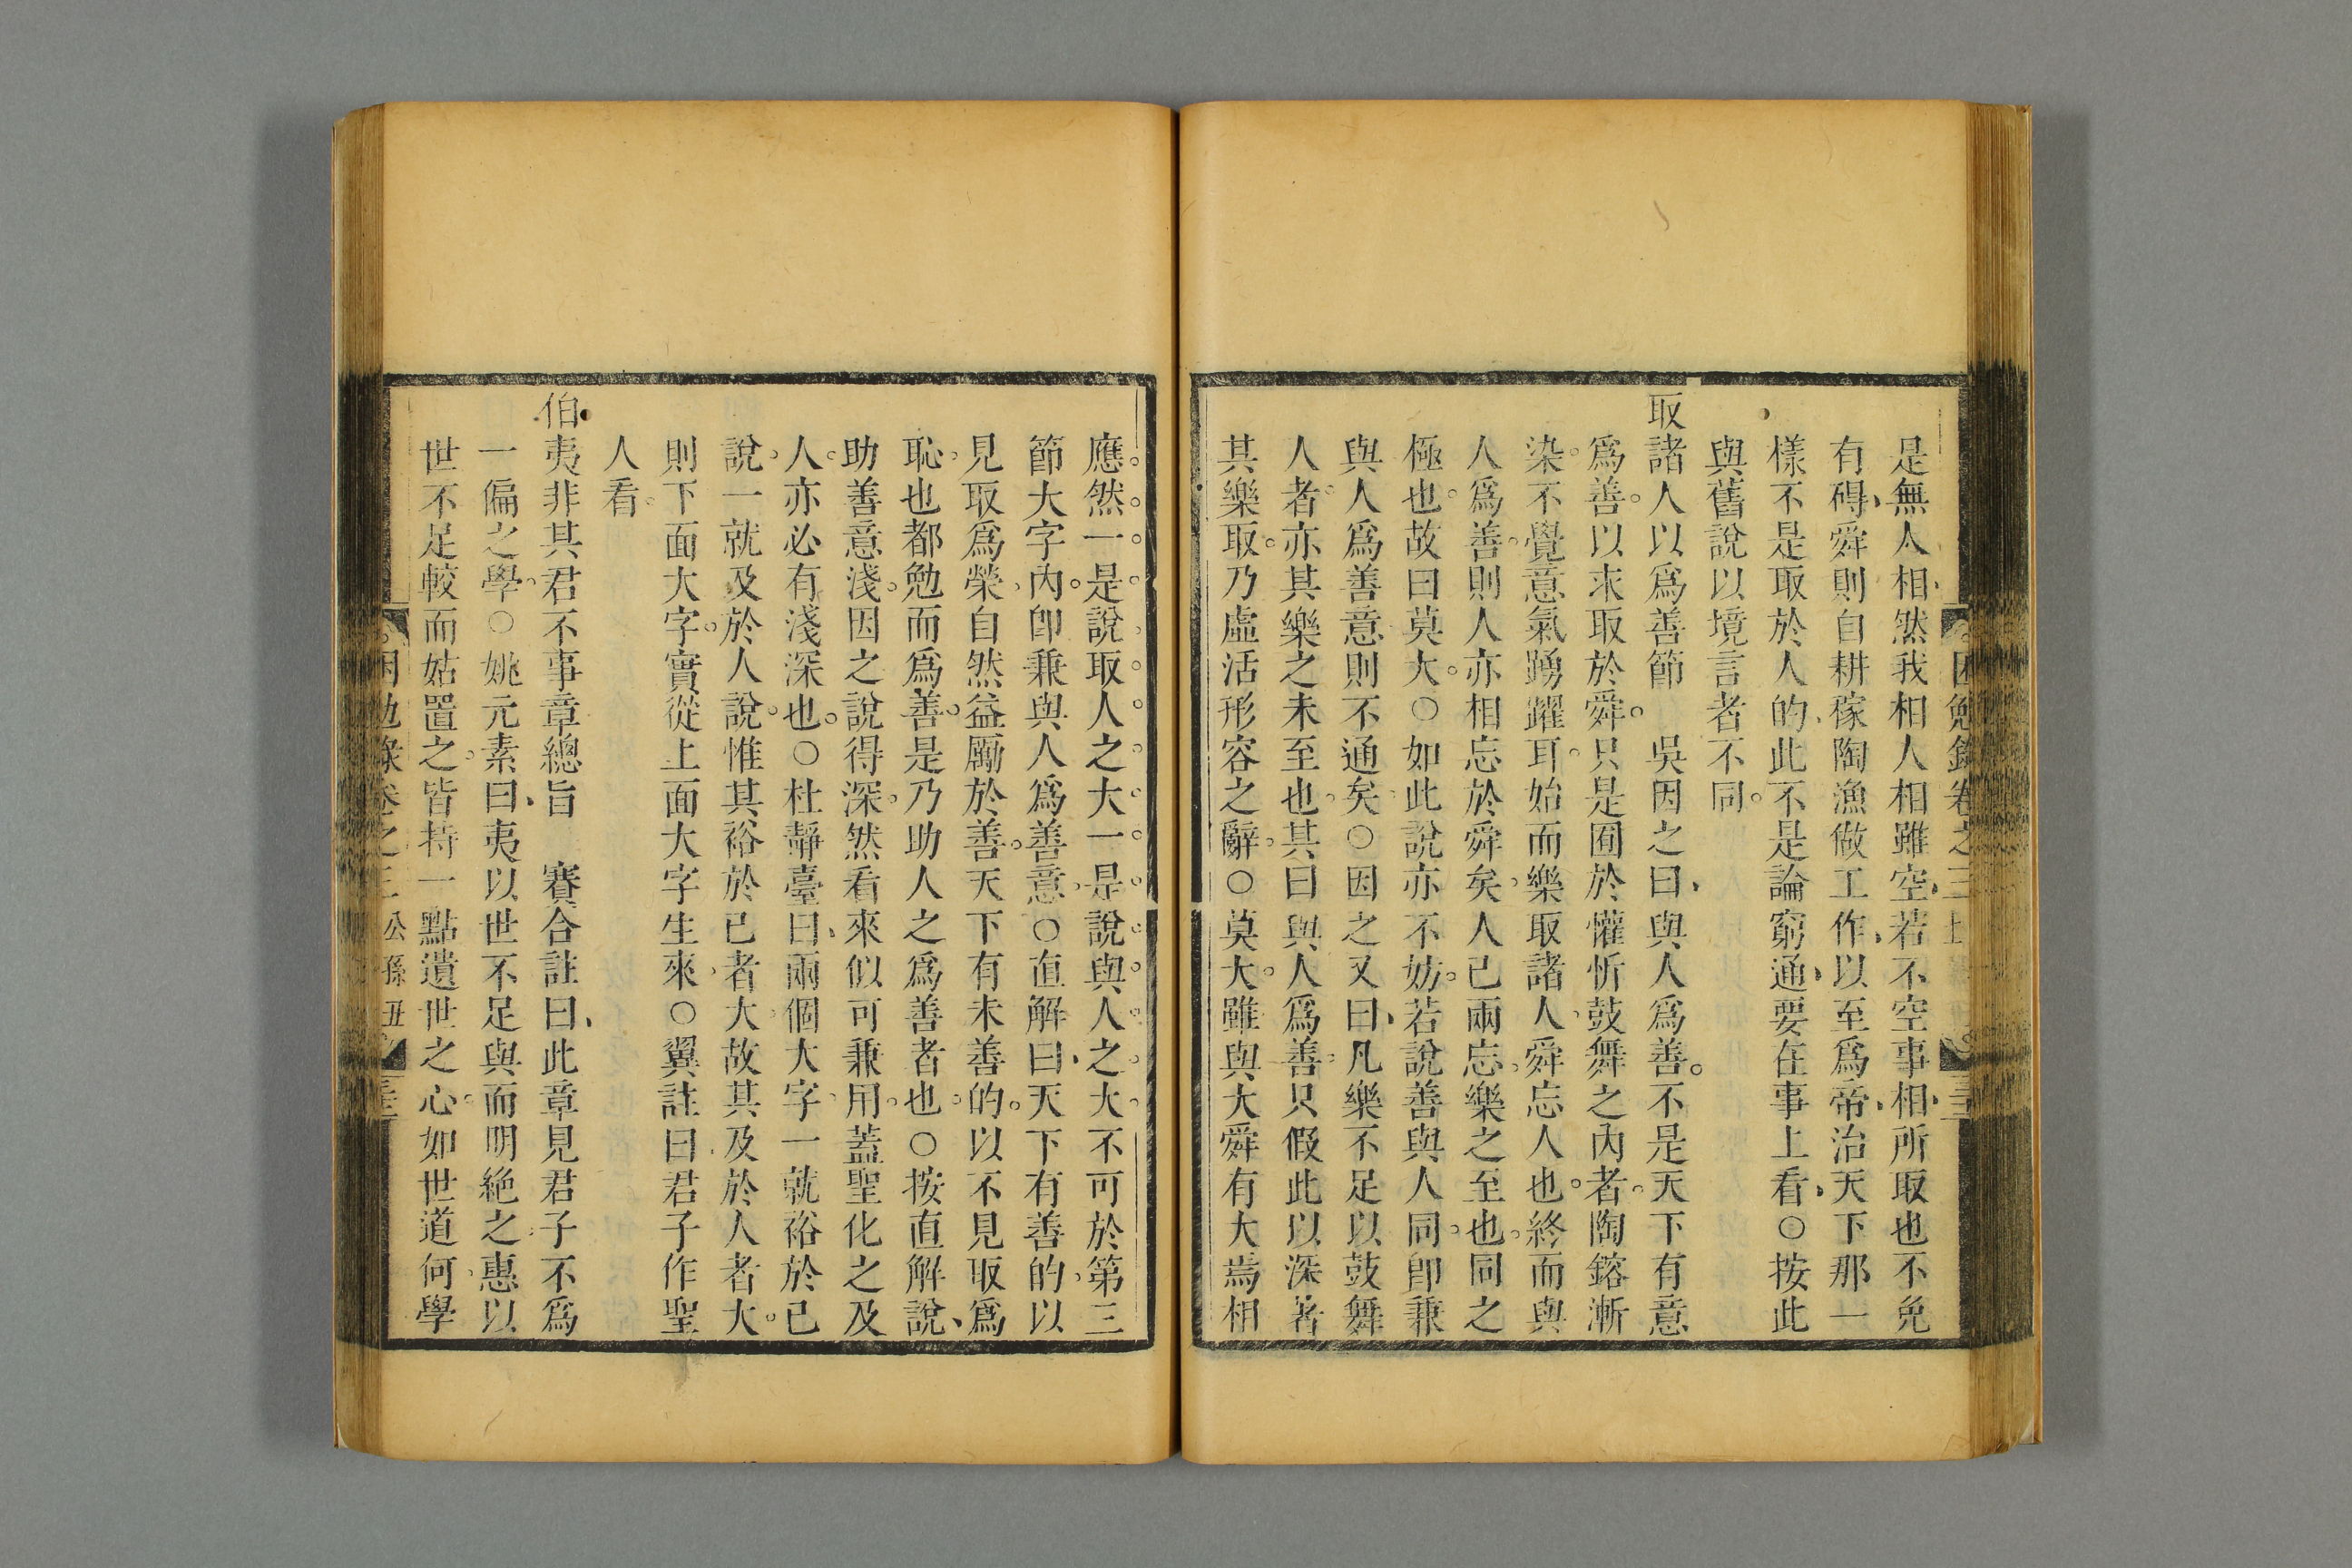 困勉錄卷之三上
是無人相然我相人相雖空若不空事相所取也不免
有碍舜則自耕稼陶漁做工作以至爲帝治天下那一
樣不是取於人的此不是論窮通要在事上看○按此
與舊說以境言者不同
取諸人以爲善節　吳因之曰與人爲善不是天下有意
爲善以求取於舜只是囿於懽忻鼓舞之內者陶鎔漸
染不覺意氣踴躍耳始而樂取諸人舜忘人也終而與
人爲善則人亦相忘於舜矣人己兩忘樂之至也同之
極也故曰莫大○如此說亦不妨若說善與人同卽兼
與人爲善意則不通矣○因之又曰凡樂不足以鼓舞
人者亦其樂之未至也其曰與人爲善只假此以深著
其樂取乃虛活形容之辭○莫大雖與大舜有大焉相
應然一是說取人之大一是說與人之大不可於第三
節大字內卽兼與人爲善意○直解曰天下有善的以
見取爲榮自然益勵於善天下有未善的以不見取爲
恥也都勉而爲善是乃助人之爲善者也○按直解說
助善意淺因之說得深然看來似可兼用蓋聖化之及
人亦必有淺深也○杜靜臺曰兩個大字一就裕於己
說一就及於人說惟其裕於己者大故其及於人者大
則下面大字實從上面大字生來○翼註曰君子作聖
人看
伯夷非其君不事章總旨　賽合註曰此章見君子不爲
一偏之學○姚元素曰夷以世不足與而明絕之惠以
世不足較而姑置之皆持一點遺世之心如世道何學
困勉錄卷之三　公孫丑